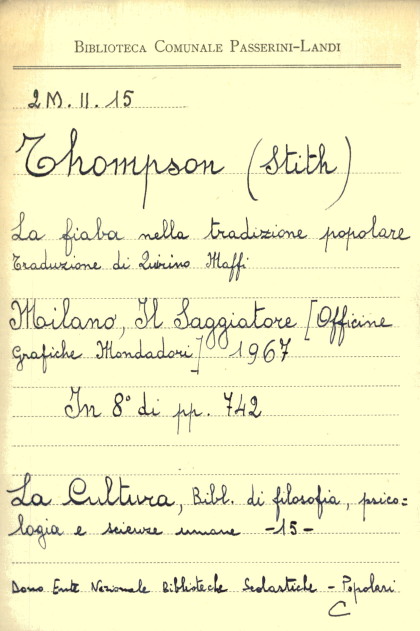 BIBLIOTECA COMUNALE PASSERINI-LANDI
2M.II.15
Thompson (Stith)
La fiaba nella tradizione popolare
Traduzione di Quirino Maffi
Milano, Il Saggiatore [Officine
Grafiche Mondadori] 1967
In 8° di pp. 742
La Cultura, Bibl. di filosofia, psico=
logia e scienze umane -15-
Dono Ente Nazionale Biblioteche Scolastiche - Popolari
C